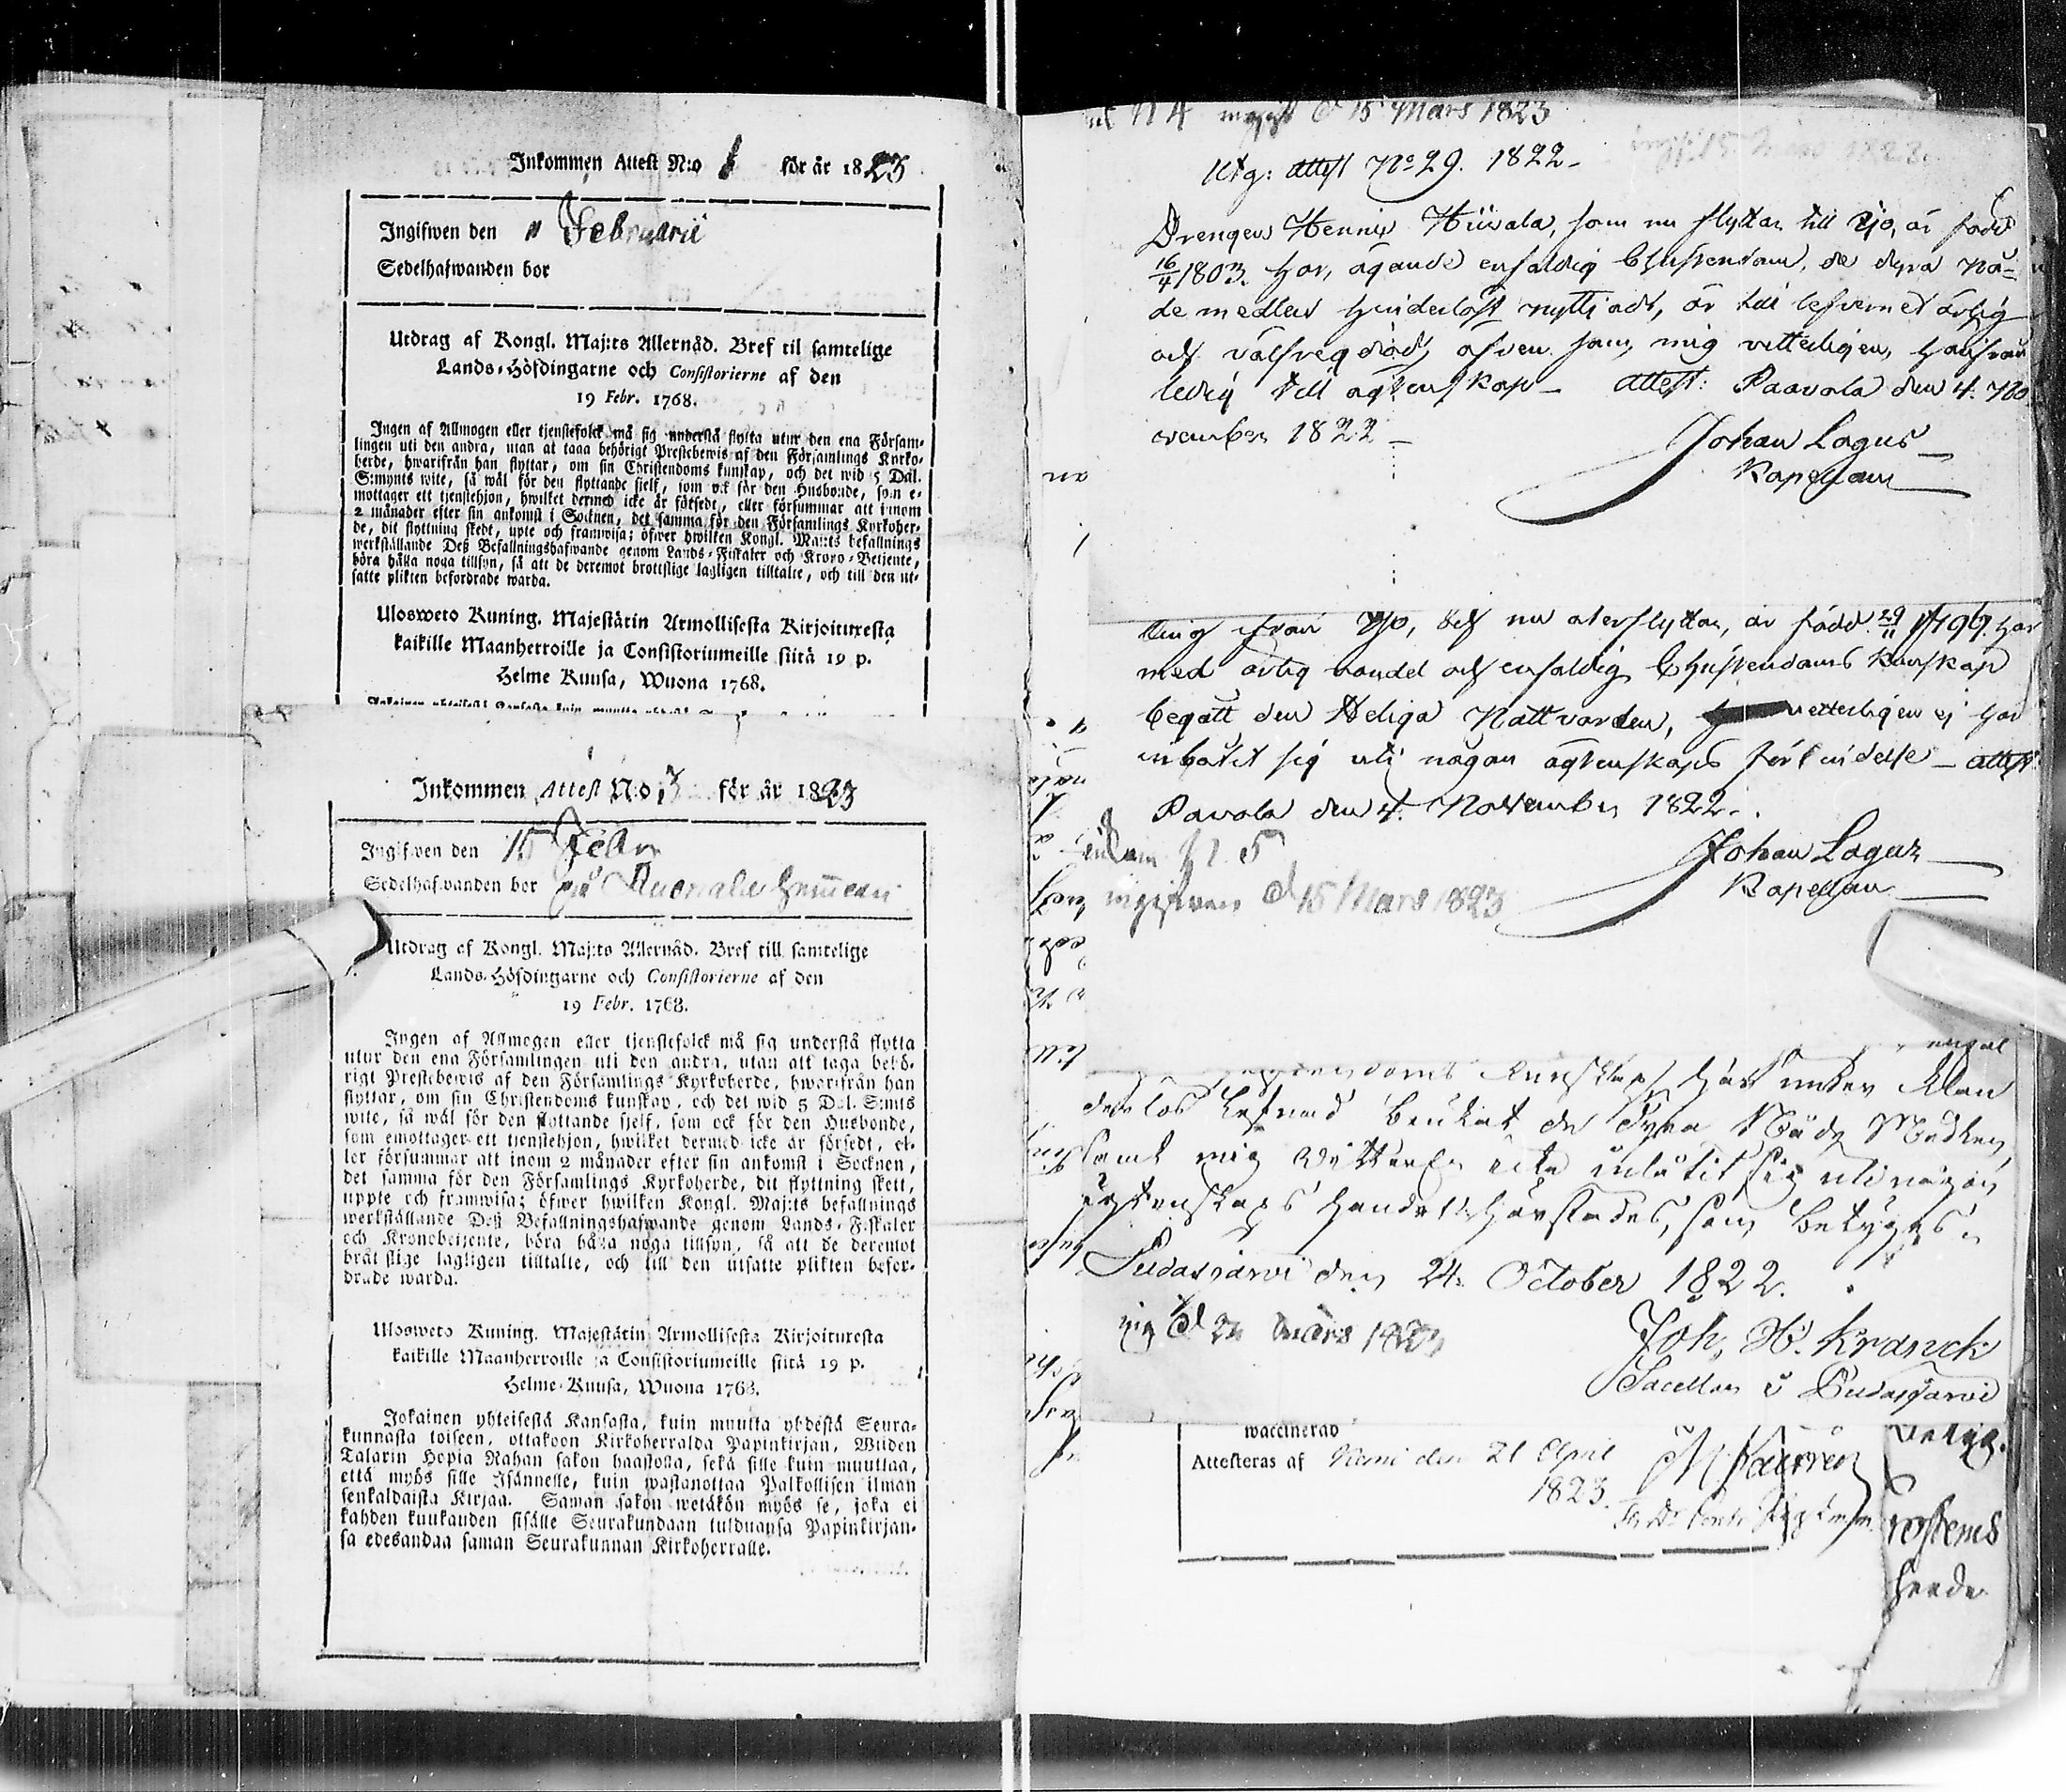 Inkommen Attest N:o 1 för år 1823
Ingifwen den 11 Februarii
Sedelhafwanden bor
Utdrag af Kongl. Maj:ts Allernåd. Bref til samtelige
Lands-Höfdingarne och Consistorierne af den
19 Febr. 1768.
Ingen af Allmogen eller tjenstefolck må sig understå flytta utur den ena Försam-
lingen uti den andra, utan at taga behörigt Prestebewis af den Församlings Kyrko-
herde, hwarifrån han flyttar, om sin Christendoms kunskap, och det wid 5 Dal.
S:mynts wite, så wäl för den flyttande sjelf, som ock för den Husbonde, som e-
mottager ett tjenstehjon, hwilket dermed icke är försedt, eller försummar att inom
2 månader efter sin ankomst i Socknen, det samma för den Församlings Kyrkoher-
de, dit flyttning skedt, upte och framwisa; öfwer hwilken Kongl. Maj:ts befallnings
werkställande Deß Befallningshafwande genom Lands-Fiskaler och Krono-Betjente,
böra hålla noga tillsyn, så att de deremot brottslige lagligen tilltalte, och till den ut-
satte plikten befordrade warda.
Ulosweto Kuning. Majestätin Armollisesta Kirjoituxesta
kaikille Maanherroille ja Consistoriumeille siitä 19 p.
Helme Kuusa, Wuona 1768.
Inkommen Attest N:o 3 för år 1823
Ingifwen den 15 Febr
Sedelhafwanden bor på hemman
Utdrag af Kongl. Maj:ts Allernåd. Bref till samtelige
Lands-Höfdingarne och Consistorierne af den
19 Febr. 1768.
Ingen af Allmogen eller tjenstefolck må sig understå flytta
utur den ena Församlingen uti den andra, utan att taga behö-
rigt Prestebewis af den Församlings Kyrkoherde, hwarifrån han
flyttar, om sin Christendoms kunskap, och det wid 5 Dal. S:mts
wite, så wäl för den flyttande sjelf, som ock för den Husbonde,
som emottager ett tjenstehjon, hwilket dermed icke är försedt, el-
ler försummar att inom 2 månader efter sin ankomst i Socknen,
det samma för den Församlings Kyrkoherde, dit flyttning skett,
uppte och framwisa; öfwer hwilken Kongl. Maj:ts befallnings
werkställande Deß Befallningshafwande genom Lands-Fiskaler
och Kronobetjente, böra hålla noga tillsyn, så att de deremot
brålslige lagligen tilltalte, och till den utsatte plikten befor-
drade warda.
Ulosweto Kuning. Majestätin Armollisesta Kirjoituxesta
kaikille Maanherroille ja Consistoriumeille siitä 19 p.
Helme-Kuusa, Wuona 1768.
Jokainen yhteisestä Kansasta, kuin muutta yhdestä Seura-
kunnasta toiseen, ottakoon Kirkoherralda Papinkirjan, Wiiden
Talarin Hopia Rahan sakon haastolla, sekä sille kuin muuttaa,
että myös sille Isännelle, kuin wastanottaa Palkollisen ilman
senkaldaista Kirjaa. Saman sakon wetäkön myös se, joka ei
kahden kuukauden sisälle Seurakundaan tulduansa Papinkirjan-
sa edesandaa saman Seurakunnan Kirkoherralle.
N 4 d 15 Mars 1823
Utg: Attest No 29. 1822
Drengen Hennix Hiivala, som nu flyttar till Ijo, är född
16/4 1803. har, ägande enfaldig Christendom, de dyra Nå-
de medlen hinderlöst nyttjadt, är till lefvernet ärlig
och välfregdad, äfven som, mig vetterligen, härifrån
ledig till ägtenskap - Attest: Paavola den 4. No
vember 1822
Johan Lagus
Kapellan
ling ifrån Ijo, dit nu återflyttar, är född 29/11 1799. har
med ärlig vandel och enfaldig Christendoms kunskap
begått den Heliga Nattvarden, vetterligen ej har
inlåtit sig uti någon ägtenskaps förbindelse - Attest:
Pavola den 4. November 1822.
Johan Lagus
Kapellan
N 5
ingifven d 15 Mars 1823
kunskap har under klan
derlös Lefnad brukat de dyra Nåde Medlen,
samt mig vetterl. icke inlåtit sig uti någon
ägtenskaps handel härstädes, som betygas.
Pudasjärvi den 24. October 1822.
Joh. H. Kranck
Sacellan i Pudasjärvi
d 22 Mars 1823
waccinerad
Attesteras af Kemi den 21 April
1823.